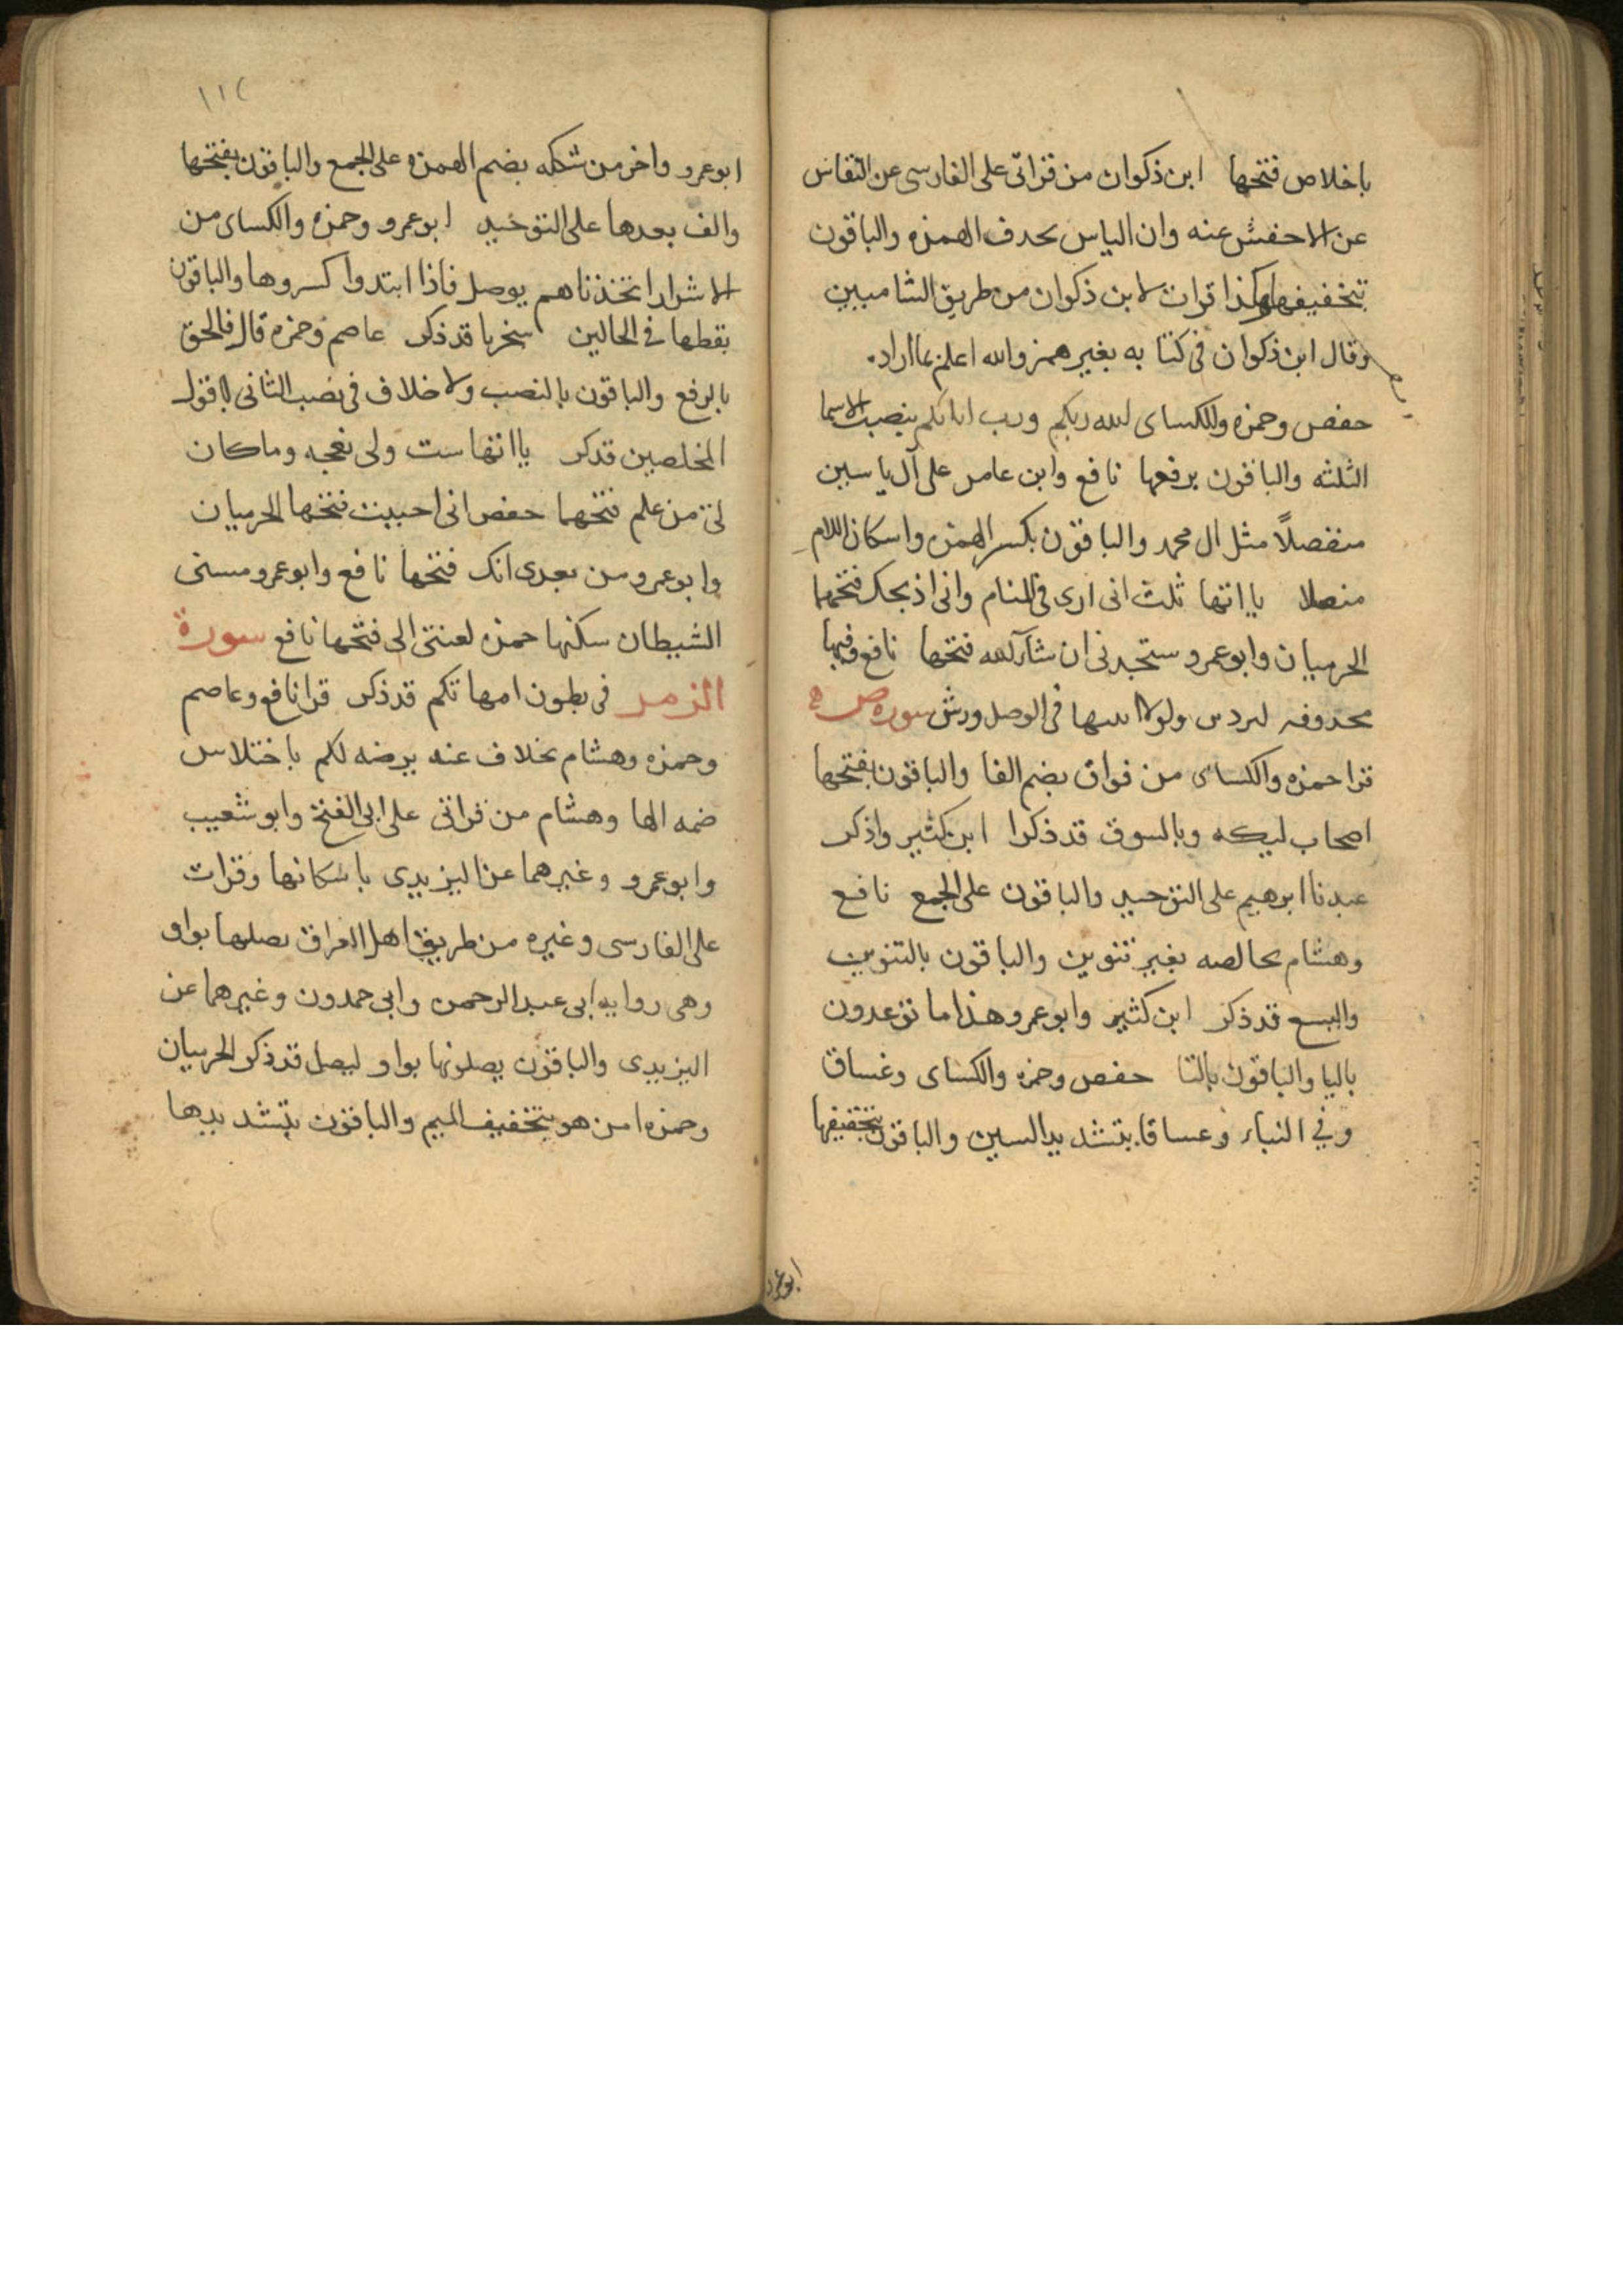 باخلاص فتحها ابن ذكوان من قراتى على الفارسى عن النقاش
عن الاخفش عنه وان الياس بحدف الهمزه والباقون
بتخفيفها وهكذا قرات لابن ذكوان من طريق الشاميين
وقال ابن ذكوان فى كتابه بغير همز والله اعلم بما اراد
حفص وحمزه وللكساى الله ربكم ورب ابائكم بنصب الاسما
الثلثه والباقون برفعها نافع وابن عامر على آل ياسين
منفصلاً مثل ال محمد والباقون بكسر الهمزه واسكان اللام
متصلا ياآتها ثلث انى ارى فى المنام وانى اذبحك فتحهما
الحرميان وابو عمرو ستجدنى ان شآء الله فتحها نافع وفيها
محذوفه لتردين ولولا اثبتها فى الوصل ورش سورة ص
قرا حمزه والكساى من فواق بضم الفا والباقون بفتحها
اصحاب ليكه وبالسوق قد ذكرا ابن كثير واذكر
عبدنا ابرهيم على التوحيد والباقون على الجمع نافع
وهشام بخالصه بغير تنوين والباقون بالتنوين
واليسع قد ذكر ابن كثير وابو عمرو هذا ما توعدون
باليا والباقون بالتا حفص وحمزه والكساى وغساق
وفي النباء وغساقا بتشديد السين والباقون بتخفيفها
ابو عمرو
١١٢
ابو عمرو واخر من شكله بضم الهمزه على الجمع والباقون بفتحها
والف بعدها على التوحيد ابو عمرو وحمزه والكساى من
الاشرار اتخذناهم يوصل فاذا ابتدوا كسروها والباقون
بقطعها فى الحالين سخريا قد ذكر عاصم وحمزه قال فالحق
بالرفع والباقون بالنصب ولا خلاف فى نصب الثانى اقول
المخلصين قد ذكر ياآتها ست ولى نعجه وما كان
لى من علم فتحهما حفص انى احببت فتحها الحرميان
وابو عمرو من بعدى انك فتحها نافع وابو عمرو مسنى
الشيطان سكنها حمزه لعنتى الى فتحها نافع سورة
الزمر فى بطون امهاتكم قد ذكر قرا نافع وعاصم
وحمزه وهشام بخلاف عنه يرضه لكم باختلاس
ضمه الها وهشام من قراتى على ابى الفتح وابو شعيب
وابو عمرو وغيرهما عن اليزيدى باسكانها وقرات
على الفارسى وغيره من طريق اهل العراق بصلتها بواو
وهى روايه ابى عبد الرحمن وابى حمدون وغيرهما عن
اليزيدى والباقون يصلونها بواو ليصل قد ذكر الحرميان
وحمزه امن هو بتخفيف الميم والباقون بتشديدها